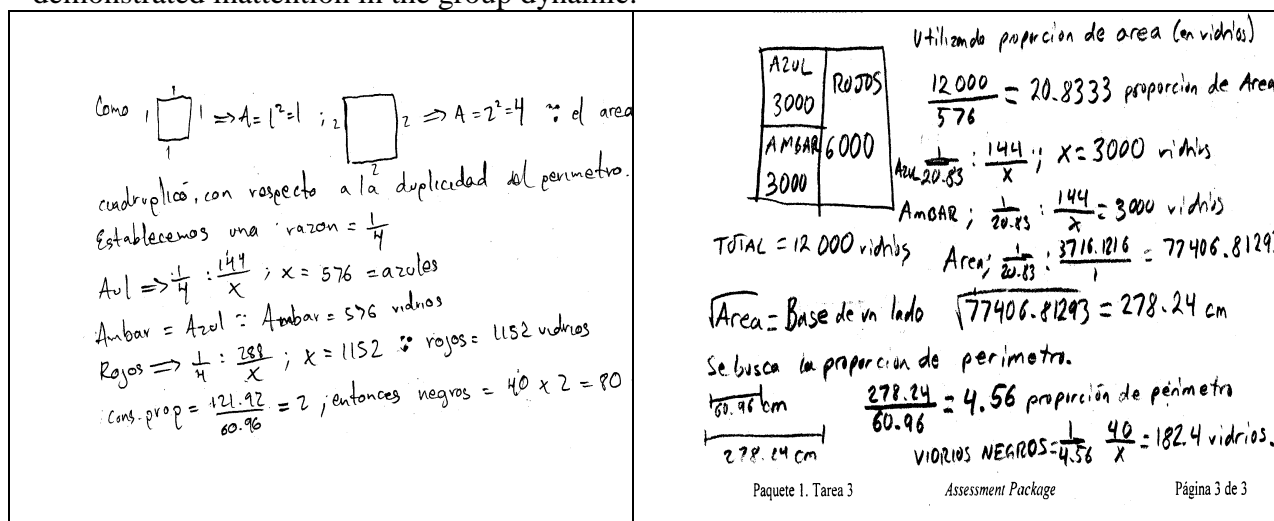 demonstrated inattention in the group dynamic.
Como 1 1 1 1 ⇒ A=1²=1 ; 2 2 2 ⇒ A=2²=4 ∵ el area
cuadruplicó, con respecto a la duplicidad del perimetro.
Establecemos una razon = 1/4
Aul ⇒ 1/4 : 144/x ; x = 576 = azules
Ambar = Azul ∵ Ambar = 576 vidrios
Rojos ⇒ 1/4 : 288/x ; x = 1152 ∵ rojos = 1152 vidrios
Cons. prop = 121.92/60.96 = 2 , entonces negros = 40 x 2 = 80
Utilizando proporcion de area (en vidrios)
AZUL
3000
ROJOS
6000
AMBAR
3000
12 000/576 = 20.8333 proporción de Area
AZUL 1/20.83 : 144/x ; x = 3000 vidrios
AMBAR ; 1/20.83 : 144/x = 3000 vidrios
TOTAL = 12 000 vidrios
Area; 1/20.83 : 3716.1216/1 = 77406.8129
√Area = Base de un lado √77406.81293 = 278.24 cm
Se busca la proporcion de perimetro.
60.96 cm
278.24 cm
278.24/60.96 = 4.56 proporción de perimetro
VIDRIOS NEGROS = 1/4.56 40/x = 182.4 vidrios.
Paquete 1. Tarea 3 Assessment Package Página 3 de 3